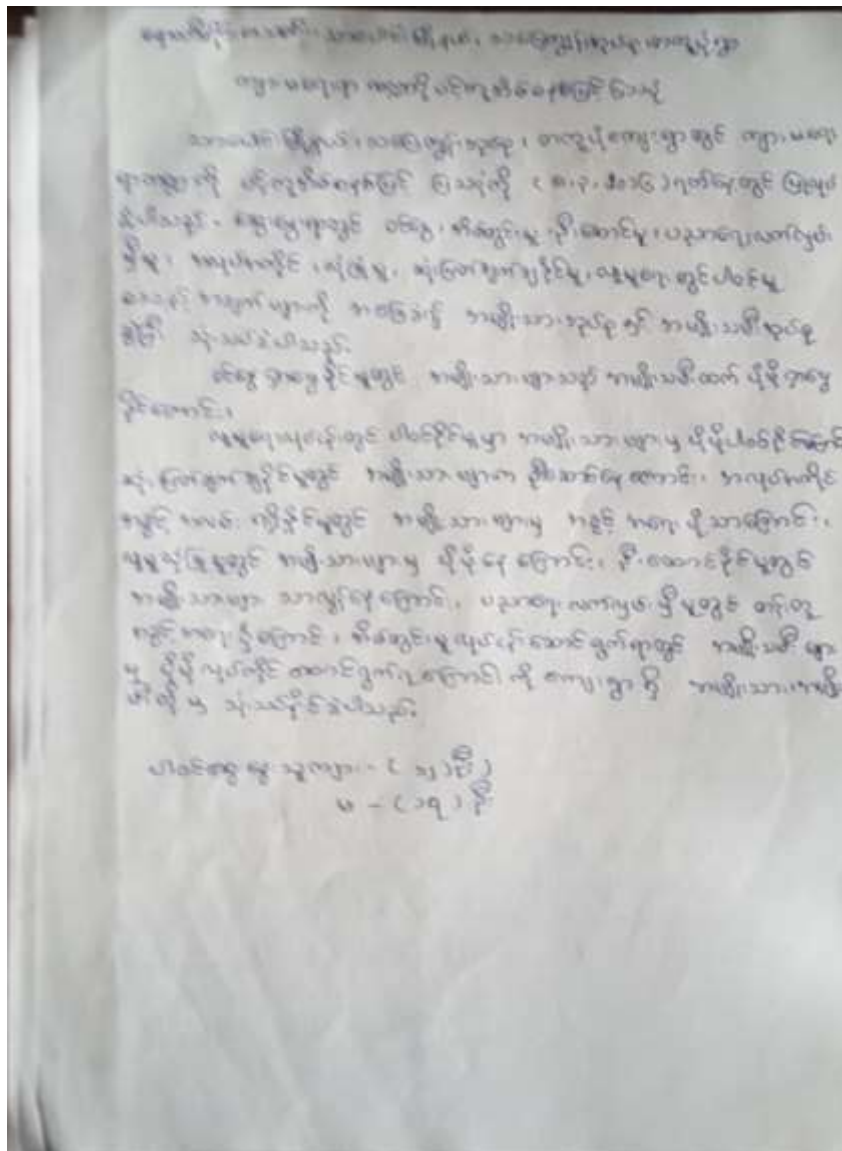 ကျား၊မရေးရာ ကွာဟချက်ကို ပင့်ကူအိမ်စနစ်ဖြင့် ပြသပုံ
သာပေါင်းမြို့နယ်၊ သပြေကျွန်းအုပ်စု၊ ကျေးရွာတွင် ကျား၊မရေး
ရာကွာဟမှုကို ပင့်ကူအိမ်စနစ်ဖြင့် ပြသပုံကို ရက်နေ့တွင် ပြုလုပ်
ခဲ့ပါသည်။ ဆွေးနွေးရာတွင် ဝင်ငွေ၊ အိမ်တွင်းမှု၊ ဦးဆောင်မှု၊ ပညာရေးလက်လှမ်း
မှီမှု၊ အလုပ်အကိုင်၊ လုံခြုံမှု၊ ဆုံးဖြတ်ချက်ချနိုင်မှု၊ လူမှုရေးတွင်ပါဝင်မှု
စသည့် အချက်များကို အခြေခံ၍ အမျိုးသားအုပ်စုနှင့် အမျိုးသမီးအုပ်စု
ခွဲပြီး သုံးသပ်ခဲ့ပါသည်။
ဝင်ငွေရှာဖွေနိုင်မှုတွင် အမျိုးသားများသည် အမျိုးသမီးထက် ပိုမိုရှာဖွေ
နိုင်ကြောင်း၊
လူမှုရေးလုပ်ငန်းတွင် ပါဝင်နိုင်မှုမှာ အမျိုးသားများမှ ပိုမိုပါဝင်နိုင်ကြောင်း
ဆုံးဖြတ်ချက်ချနိုင်မှုတွင် အမျိုးသားများက ဦးဆောင်နေကြောင်း၊ အလုပ်အကိုင်
အခွင့်အလမ်း ရရှိနိုင်မှုတွင် အမျိုးသားများမှ အခွင့်အရေး ပိုသာကြောင်း၊
လူမှုလုံခြုံမှုတွင် အမျိုးသားများမှ ပိုမိုနေကြောင်း၊ ဦးဆောင်နိုင်မှုတွင်
အမျိုးသားများ သာလွန်နေကြောင်း၊ ပညာရေးလက်လှမ်းမှီမှုတွင် တန်းတူ
အခွင့်အရေးရှိကြောင်း၊ အိမ်တွင်းမှုလုပ်ငန်းဆောင်ရွက်ရာတွင် အမျိုးသမီးများ
မှ ပိုမိုလုပ်ကိုင်ဆောင်ရွက်ရကြောင်း ကို ကျေးရွာရှိ အမျိုးသား၊အမျိုး
သမီးတို့မှ သုံးသပ်နိုင်ခဲ့ပါသည်။
ပါဝင်ဆွေးနွေးသူကျား - ( ၁၂ )ဦး
မ - ( ၁၇ )ဦး